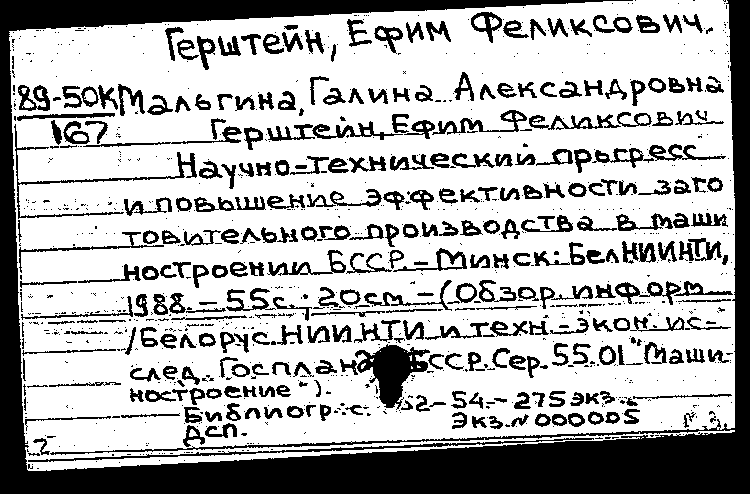 Герштейн, Ефим Феликсович.
89-50К Мальгина, Галина Александровна
167 Герштейн, Ефим Феликсович
Научно-технический прогресс
и повышение эффективности заго
товительного производства в маши
ностроении БССР. - Минск: БелНИИНТИ,
1988. - 55с.; 20см. - (Обзор. информ
/Белорус. НИИНТИ и техн.-экон. ис-
след. Госплана БССР. Сер. 55.01 "Маши-
ностроение").
Библиогр.: с. 52-54. - 275 экз.
ДСП. Экз. N 000005